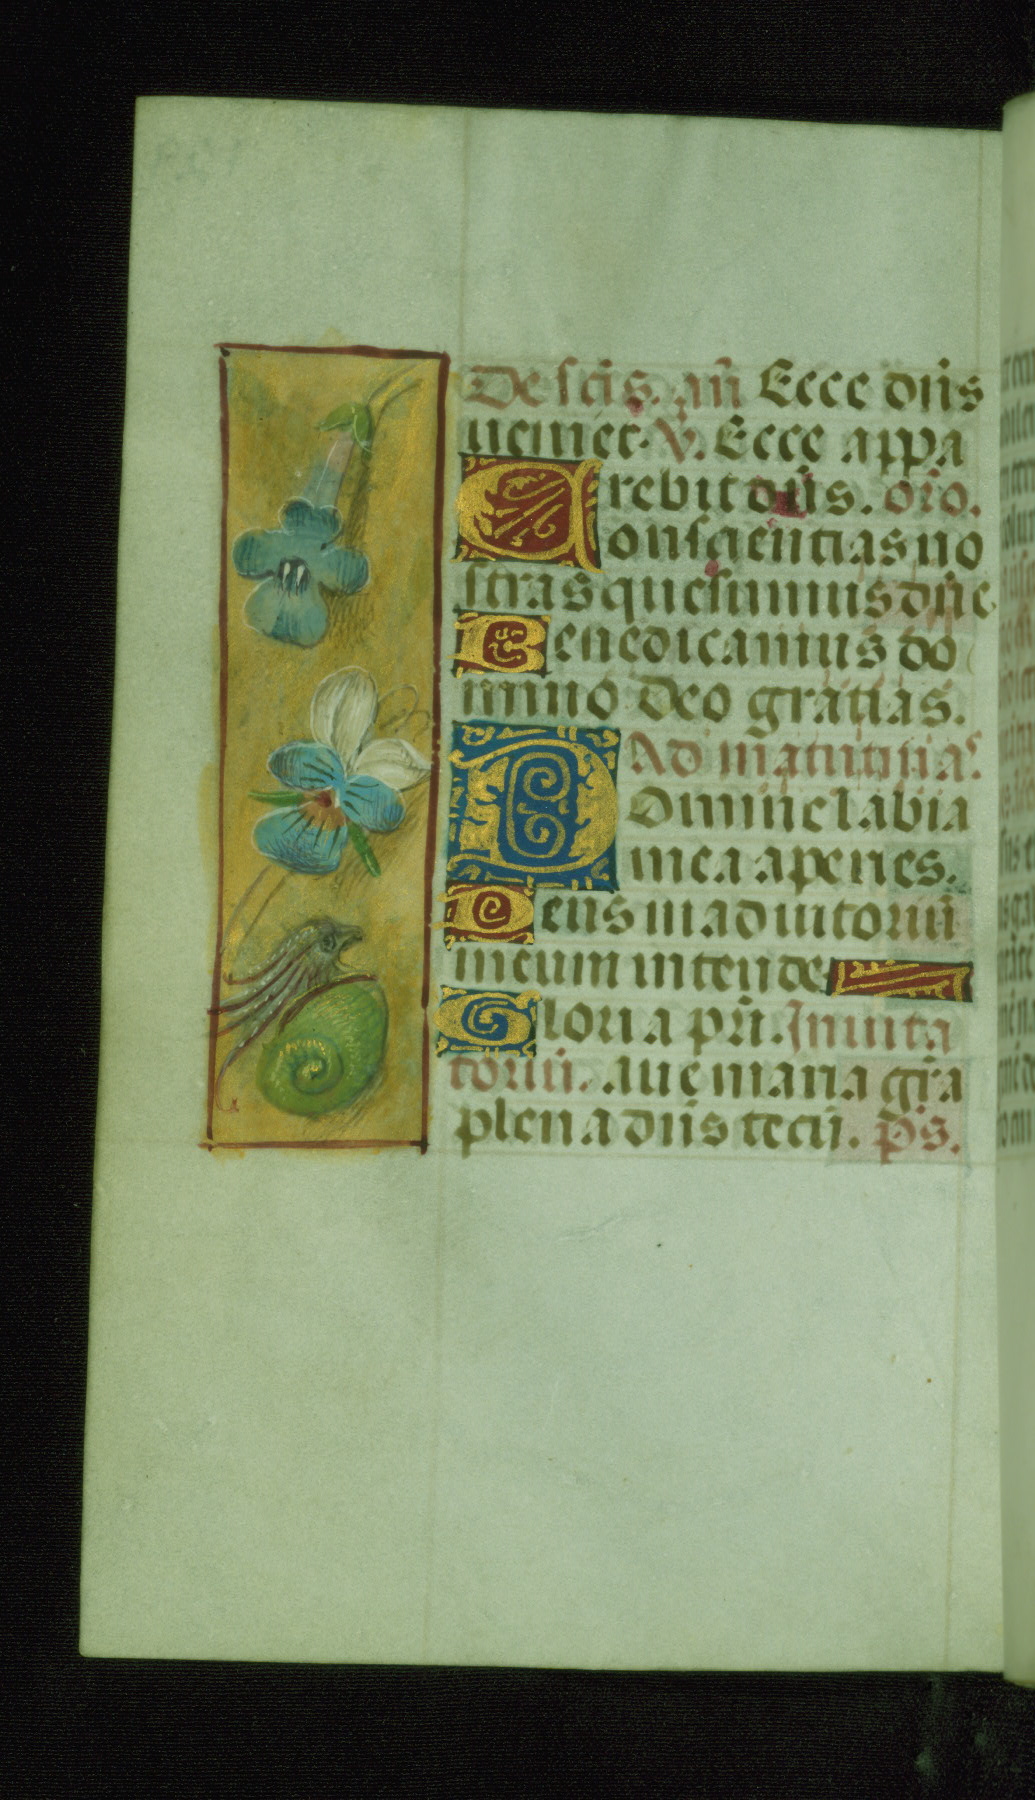 De scis. añ Ecce dñs
ueniet. V. Ecce appa
rebit dñs. oro.
Consciencias no
stras quesumus dñe
Benedicamus do
mino Deo gratias.
Ad matutinas.
Domine labia
mea aperies.
Deus in adiutoriũ
meum intende
Gloria pri. Inuita
toriũ. Aue maria gra
plena dñs tecũ. ps.